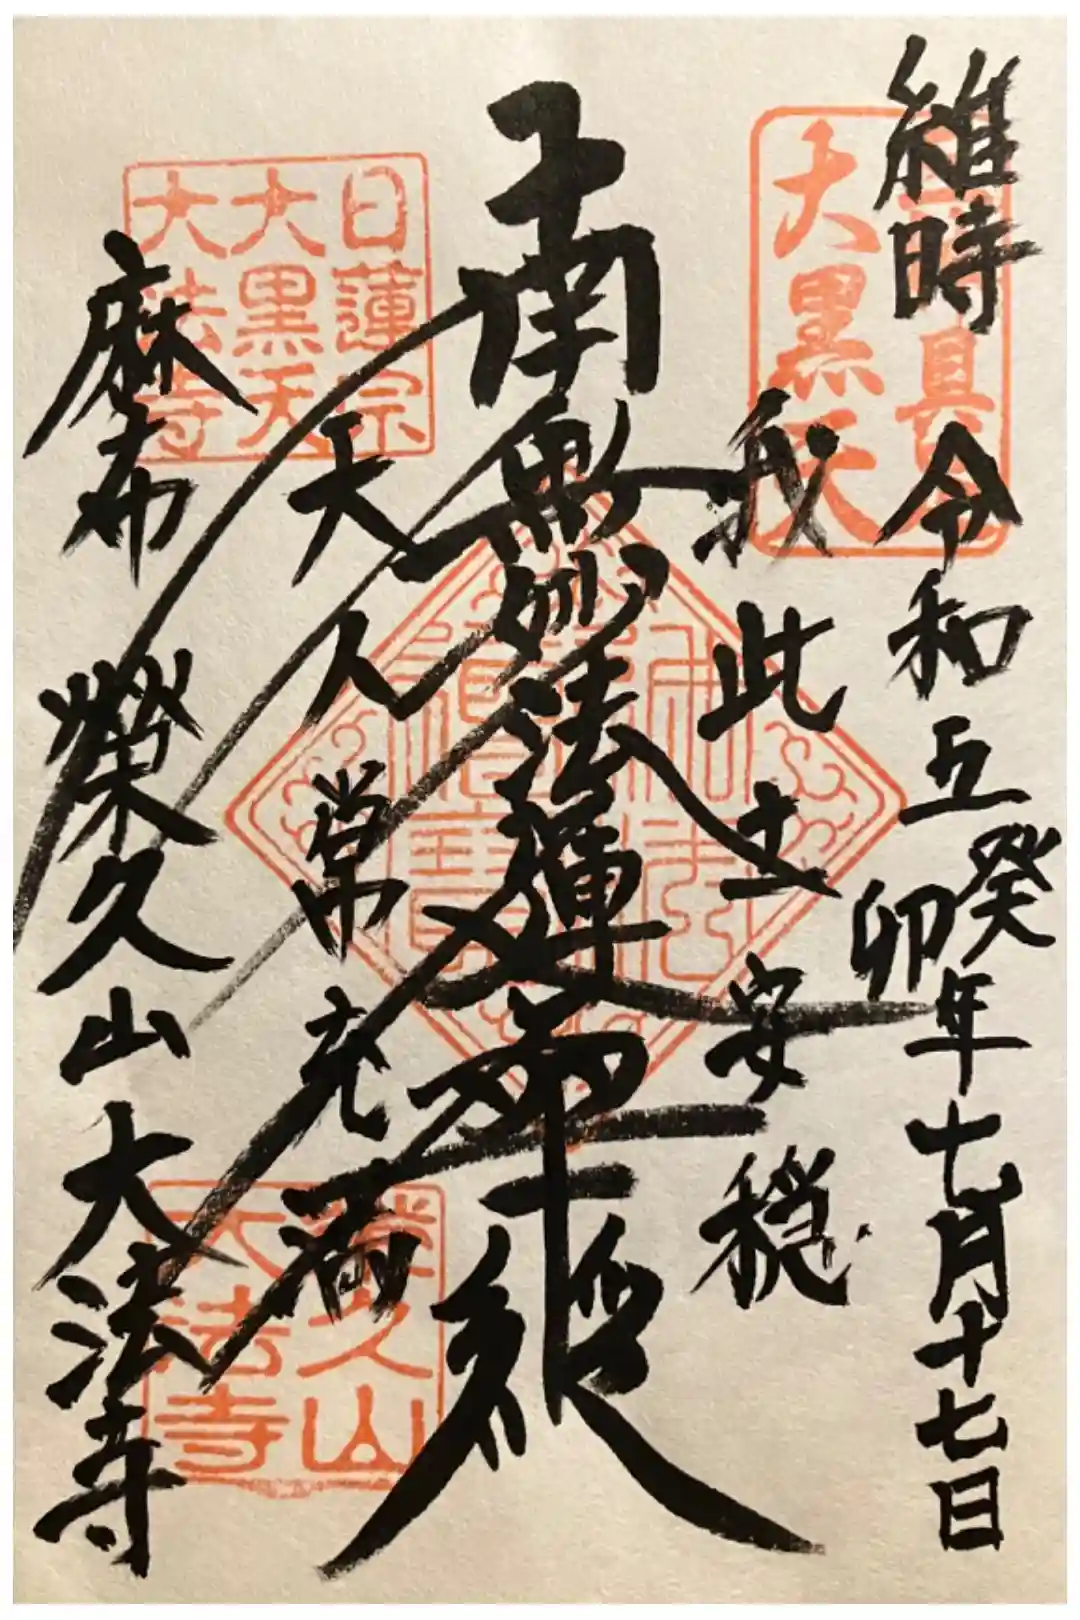 維時 令和五癸卯年七月十七日
三神具足
大黒天
我此土安穏
南無妙法蓮華経
天人常充満
麻布 榮久山大法寺
日蓮宗
大黒天
大法寺
榮久山
大法寺